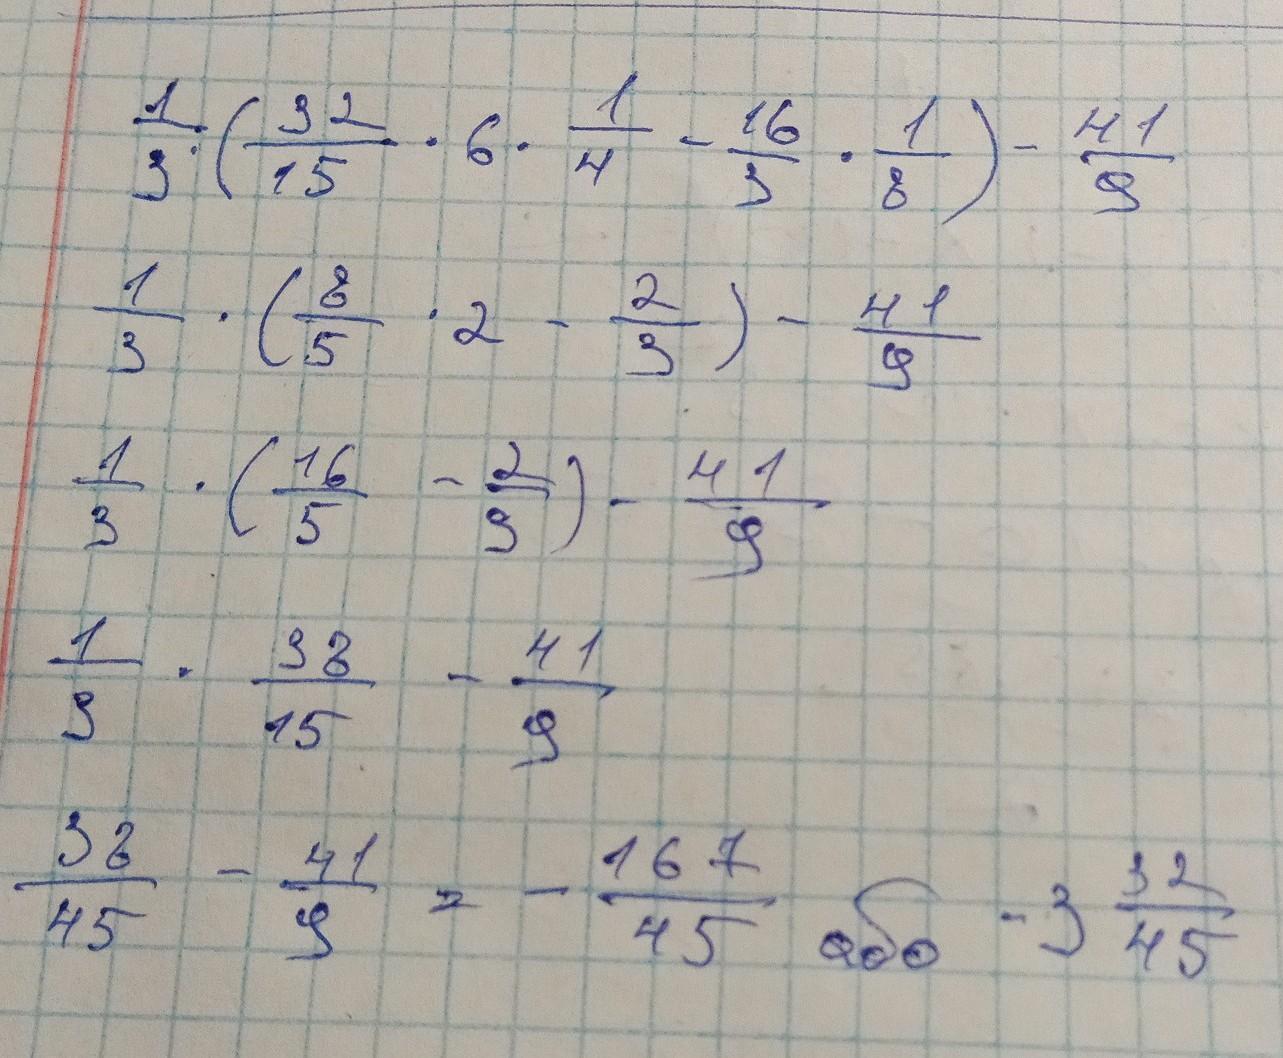 1/3 · (32/15 · 6 · 1/4 - 16/3 · 1/8) - 41/9
1/3 · (8/5 · 2 - 2/3) - 41/9
1/3 · (16/5 - 2/3) - 41/9
1/3 · 38/15 - 41/9
38/45 - 41/9 = - 167/45 або - 3 32/45